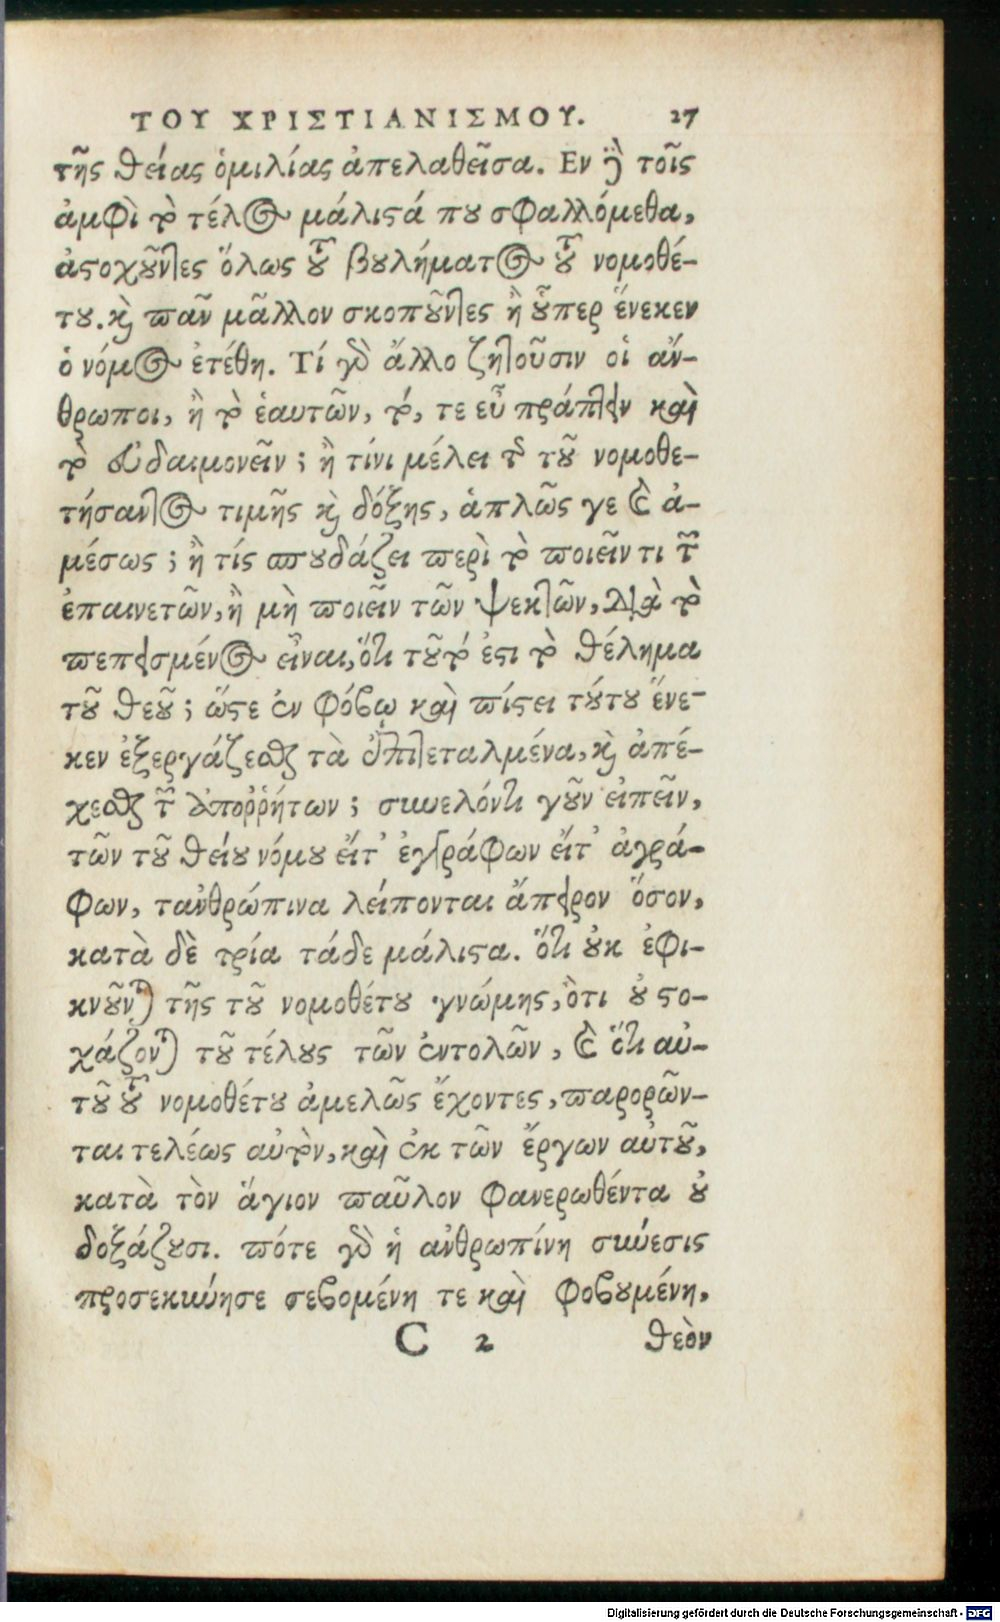 ΤΟΥ ΧΡΙΣΤΙΑΝΙΣΜΟΥ. 27
τῆς θείας ὁμιλίας ἀπελαθεῖσα. Εν ϗ̀ τοῖς
ἀμφὶ τὸ τέλος μάλιϛά που σφαλλόμεθα,
ἀϛοχοῦντες ὅλως τοῦ βουλήματος τοῦ νομοθέ-
του. καὶ πᾶν μᾶλλον σκοποῦντες ἢ οὗπερ ἕνεκεν
ὁ νόμος ἐτέθη. Τί γὸ ἄλλο ζητοῦσιν οἱ ἄν-
θρωποι, ἢ τὸ ἑαυτῶν, τό, τε εὖ πράττειν καὶ
τὸ εὐδαιμονεῖν; ἢ τίνι μέλει τῆς τοῦ νομοθε-
τήσαντος τιμῆς καὶ δόξης, ἁπλῶς γε καὶ ἀ-
μέσως; ἢ τίς σπουδάζει περὶ τὸ ποιεῖν τι τῶν
ἐπαινετῶν, ἢ μὴ ποιεῖν τῶν ψεκτῶν, διὰ τὸ
πεπεισμένος εἶναι, ὅτι τοῦτό ἐϛι τὸ θέλημα
τοῦ θεοῦ; ὥϛε ἐν φόβῳ καὶ πίϛει τούτου ἕνε-
κεν ἐξεργάζεσθαι τὰ ἐπιτεταλμένα, καὶ ἀπέ-
χεσθαι τῶν ἀποῤῥήτων; συνελόντι γοῦν εἰπεῖν,
τῶν τοῦ θείου νόμου εἴτ' ἐγγράφων εἴτ' ἀγρά-
φων, τἀνθρώπινα λείπονται ἄπειρον ὅσον,
κατὰ δὲ τρία τάδε μάλιϛα. ὅτι οὐκ ἐφι-
κνοῦνται τῆς τοῦ νομοθέτου γνώμης, ὅτι οὐ ϛο-
χάζονται τοῦ τέλους τῶν ἐντολῶν, καὶ ὅτι αὐ-
τοῦ τοῦ νομοθέτου ἀμελῶς ἔχοντες, παρορῶν-
ται τελέως αὐτὸν, καὶ ἐκ τῶν ἔργων αὐτοῦ,
κατὰ τὸν ἅγιον παῦλον φανερωθέντα οὐ
δοξάζουσι. πότε γὸ ἡ ἀνθρωπίνη σύνεσις
προσεκύνησε σεβομένη τε καὶ φοβουμένη,
C 2 θεὸν
Digitalisierung gefördert durch die Deutsche Forschungsgemeinschaft - DFG